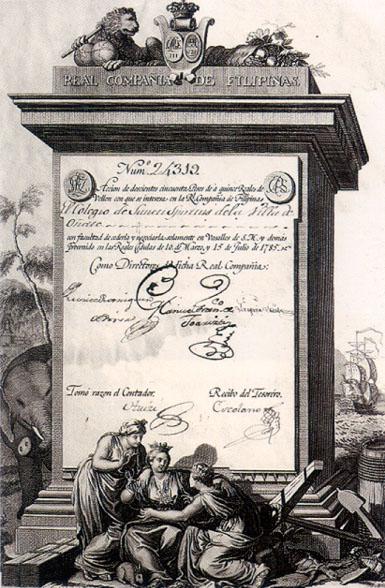 REAL COMPAÑIA DE FILIPINAS.
Num.º 24312
Accion de doscientos cincuenta Pesos de á quince Reales de
Vellon con que se interesa en la Rl. Compañia de Filipinas
El Colegio de Sancti Spiritus de la Villa de
Oñate
con facultad de cederla y negociarla solamente en Vasallos de S.M. y demás
prevenido en las Reales Cédulas de 10 de Marzo, y 15 de Julio de 1785.
Como Directores de dicha Real Compañia:
Tomó razon el Contador.
Recibo del Tesorero.